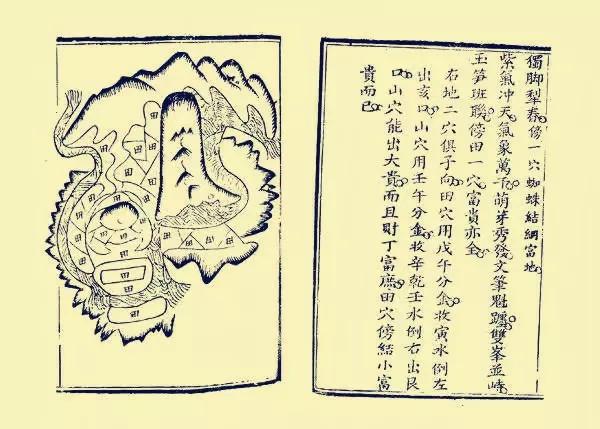 獨脚犁春傍一穴蜘蛛結網富地
紫氣冲天氣象萬千萌芽秀發文筆魁躔雙峯並峙
玉笋班聯傍田一穴富貴亦全
右地二穴俱子向田穴用戊午分金收寅水倒左
出亥口山穴用壬午分金收辛乾壬水倒右出艮
口山穴能出大貴而且財丁富庶田穴傍結小富
貴而已
田
田
田
田
田
田
田
田
田
田
田
田
田
田